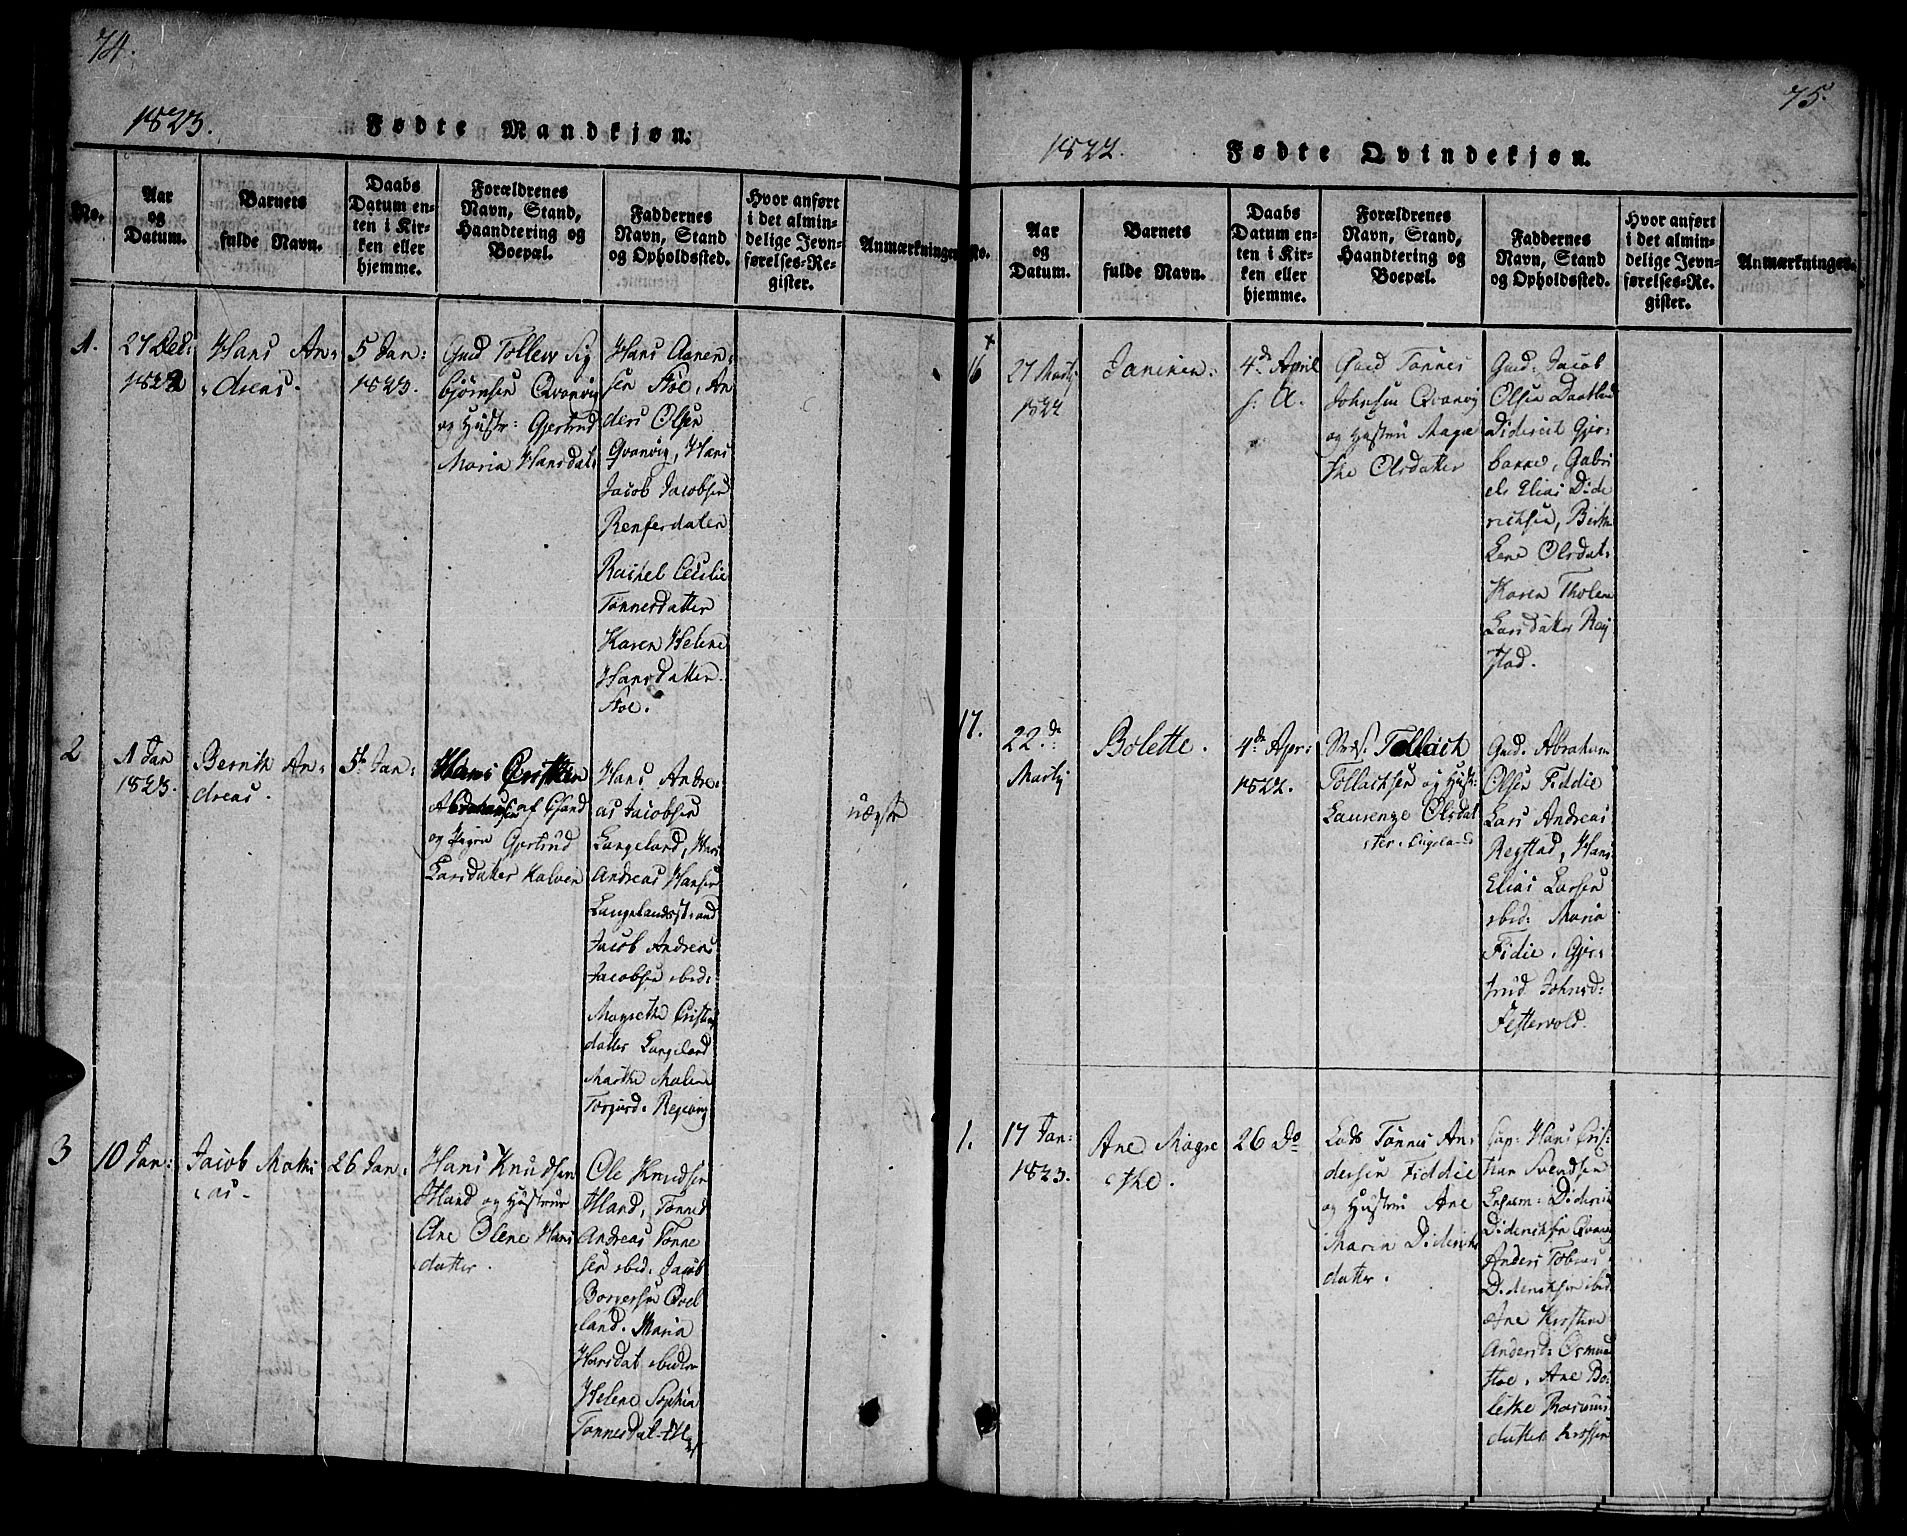 74.
1823.
Fødte Mandkjøn.
No.
Aar
og
Datum.
Barnets
fulde Navn.
Daabs
Datum en-
ten i Kir-
ken eller
hjemme.
Forældrenes
Navn, Stand,
Haandtering og
Boepæl.
Faddernes
Navn, Stand
og Opholdssted.
Hvor anført
i det almin-
delige Jevn-
førelses-Re-
gister.
Anmærkninger.
1.
27 Dec:
1822
Hans An-
dreas.
5 Jan:
1823.
Gmd Tollew Sig
bjørnsen Qvanvig
og Hustr: Gjertrud
Maria Hansdat:
Hans Aanen-
sen Stoe, An
ders Olsen
Qvanvig, Hans
Jacob Jacobsen
Renferdalen
Rachel Cecilie
Tønnesdatter
Karen Helene
Hansdatter
Stoe.
2
1 Jan
1823.
Bernth An-
dreas.
5te Jan:
Hans Cristian
af
og Pigen Gjertrud
Larsdatter Kalven
Hans Andre-
as Jacobsen
Langeland, Hans
Andreas Hansen
Langelandsstrand
Jacob Andreas
Jacobsen ibid:
Magrethe Crist
datter Langeland
Marthe Malene
Torjusd:
uægte
3
10 Jan:
Jacob Mathi
as.
26 Jan:
Hans Knudsen
Hland og Hustrue
Ane Olene Hans
datter.
Ole Knudsen
Hland, Tønnes
Andreas Tønne
sen ibid: Jacob
Børresen Qvel
land. Maria
Hansdat ibidem
Helene Sophia
Tønnesdat
75.
1822.
Fødte Qvindekjøn.
No.
Aar
og
Datum.
Barnets
fulde Navn.
Daabs
Datum en-
ten i Kir-
ken eller
hjemme.
Forældrenes
Navn, Stand,
Haandtering og
Boepæl.
Faddernes
Navn, Stand
og Opholdssted.
Hvor anført
i det almin-
delige Jevn-
førelses-Re-
gister.
Anmærkninger.
16
27 Martj
1822
Janiken.
4de April
s: A.
Gmd Tønnes
Johnsen Qvanvig
og Hustru Magre
the Olsdatter
Gmd: Jacob
Olsen Daatland
Diderik Gjer-
, Gabri
el Elias Dide
richsen, Birthe
Lene Olsdat:
Karen Tholene
Larsdatter Reg
stad.
17.
22.de
Martj
Bolette.
4de Apr:
1822.
Tollach
Tollachsen og Hust:
Laurenze Olsdat
ter.
Gmd. Abraham
Olsen Fiddie
Lars Andreas
Regstad, Hans
Elias Larsen
ibid: Maria
Fidie, Gjer-
trud Johnsd:
1.
17 Jan:
1823.
Ane Magre
the.
26 Do
Lods Tønnes An-
dersen Fiddie
og Hustru Ane
Maria Diderichs
datter.
Cap: Hans Cris-
tian Svendsen
Diderik
Dideriksen Qvanvig
Anders Tobias
Dideriksen ibid
Ane Kirstine
Andersd:
Stoe, Ane Bo-
lethe Rasmus
datter